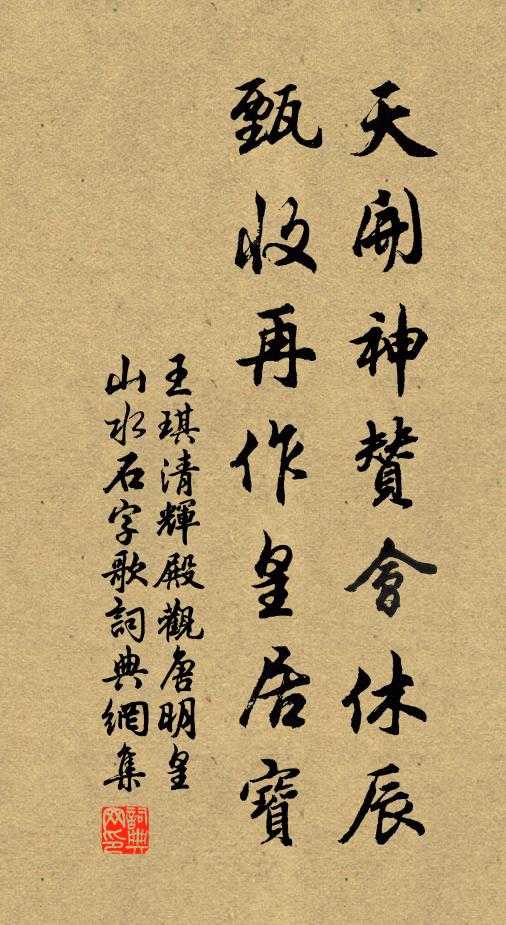 天開神贊會休辰
甄收再作皇居寶
王琪清輝殿觀唐明皇
山水石字歌詞典網集
詞典
网印